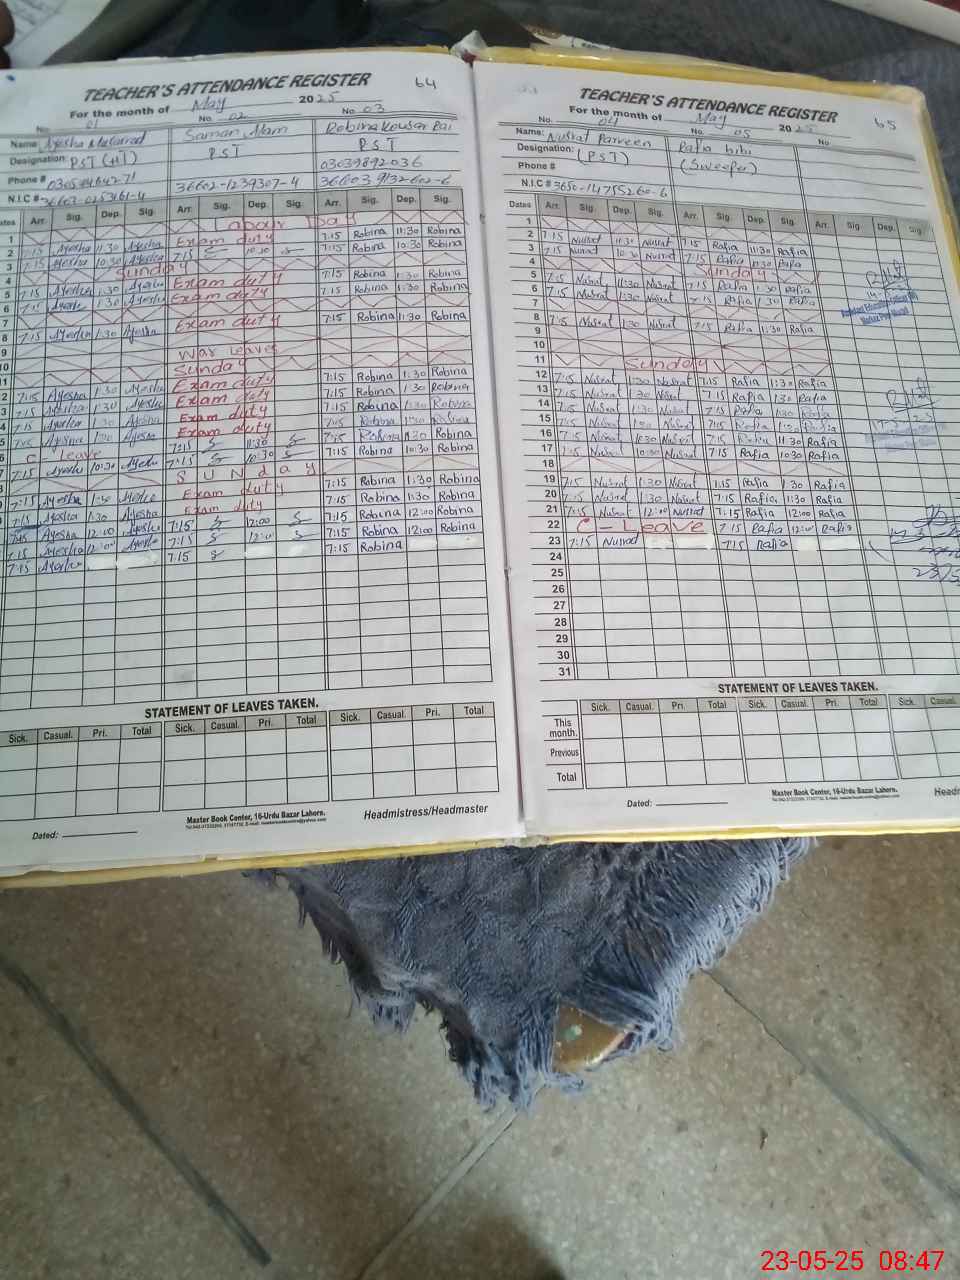 TEACHER'S ATTENDANCE REGISTER 64
For the month of May 2025
No. 01 No. 02 No. 03
Name Ayesha Saman Alam Robina Kousar
Designation: PST (HT) PST PST
Phone # 03039892036
N.I.C # 36602-1239307-4 36603 9132602-6
Dates Arr. Sig. Dep. Sig. Arr. Sig. Dep. Sig. Arr. Sig. Dep. Sig.
1 Labour Day
2 7:15 Ayesha 11:30 Ayesha Exam duty 7:15 Robina 11:30 Robina
3 7:15 Ayesha 10:30 Ayesha 7:15 10:30 7:15 Robina 10:30 Robina
4 Sunday
5 7:15 Ayesha 1:30 Ayesha Exam duty 7:15 Robina 1:30 Robina
6 7:15 Ayesha 1:30 Ayesha Exam duty 7:15 Robina 1:30 Robina
7
8 7:15 Ayesha 1:30 Ayesha Exam duty 7:15 Robina 1:30 Robina
9
10 War leaves
11 Sunday
7:15 Ayesha 1:30 Ayesha Exam duty 7:15 Robina 1:30 Robina
7:15 Ayesha 1:30 Ayesha Exam duty 7:15 Robina 1:30 Robina
7:15 Ayesha 1:30 Ayesha Exam duty 7:15 Robina 1:30 Robina
7:15 Ayesha 1:30 Ayesha Exam duty 7:15 Robina 1:30 Robina
C Leave 7:15 11:30 7:15 Robina 1:30 Robina
7:15 Ayesha 10:30 Ayesha 7:15 10:30 7:15 Robina 10:30 Robina
Sunday
7:15 Ayesha 1:30 Ayesha Exam duty 7:15 Robina 1:30 Robina
7:15 Ayesha 1:30 Ayesha Exam duty 7:15 Robina 1:30 Robina
7:15 Ayesha 12:00 Ayesha 7:15 12:00 7:15 Robina 12:00 Robina
7:15 Ayesha 12:00 Ayesha 7:15 12:00 7:15 Robina 12:00 Robina
7:15 Ayesha 7:15 7:15 Robina
STATEMENT OF LEAVES TAKEN.
Sick. Casual. Pri. Total Sick. Casual. Pri. Total Sick. Casual. Pri. Total
Dated: Master Book Center, 16-Urdu Bazar Lahore. Headmistress/Headmaster
TEACHER'S ATTENDANCE REGISTER 65
For the month of May 2025
No. 04 No. 05 No
Name: Nusrat Parveen Rafia bibi
Designation: (PST) (Sweeper)
Phone #
N.I.C #
Dates Arr. Sig. Dep. Sig. Arr. Sig. Dep. Sig. Arr. Sig. Dep. Sig
1
2 7:15 Nusrat 11:30 Nusrat 7:15 Rafia 11:30 Rafia
3 7:15 Nusrat 10:30 Nusrat 7:15 Rafia Rafia
4 Sunday
5 7:15 Nusrat 11:30 Nusrat 7:15 Rafia 1:30 Rafia
6 7:15 Nusrat 1:30 Nusrat 7:15 Rafia 1:30 Rafia
7
8 7:15 Nusrat 1:30 Nusrat 7:15 Rafia 11:30 Rafia
9
10
11 Sunday
12 7:15 Nusrat 1:30 Nusrat 7:15 Rafia 1:30 Rafia
13 7:15 Nusrat 1:30 Nusrat 7:15 Rafia 1:30 Rafia
14 7:15 Nusrat 1:30 Nusrat 7:15 Rafia 1:30 Rafia
15 7:15 Nusrat 1:30 Nusrat 7:15 Rafia 1:30 Rafia
16 7:15 Nusrat 11:30 Nusrat 7:15 Rafia 11:30 Rafia
17 7:15 Nusrat 10:30 Nusrat 7:15 Rafia 10:30 Rafia
18
19 7:15 Nusrat 1:30 Nusrat 7:15 Rafia 1:30 Rafia
20 7:15 Nusrat 1:30 Nusrat 7:15 Rafia 1:30 Rafia
21 7:15 Nusrat 12:00 Nusrat 7:15 Rafia 12:00 Rafia
22 C - Leave 7:15 Rafia 12:00 Rafia
23 7:15 Nusrat 7:15 Rafia
24
25
26
27
28
29
30
31
STATEMENT OF LEAVES TAKEN.
Sick. Casual. Pri. Total Sick. Casual. Pri. Total Sick. Casual.
This month.
Previous
Total
Dated: Master Book Center, 16-Urdu Bazar Lahore.
23-05-25 08:47